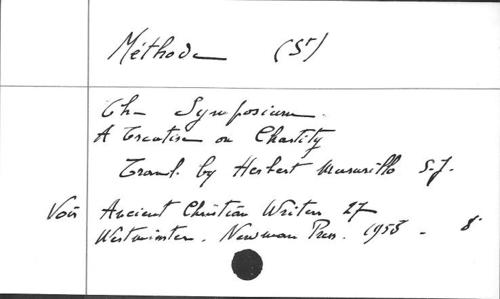 Méthode (St)
The Symposium.
A Treatise on Chastity
Transl. by Herbert Musurillo S.J.
Voir Ancient Christian Writers 27
Westminster. Newman Press. 1958 - 8°